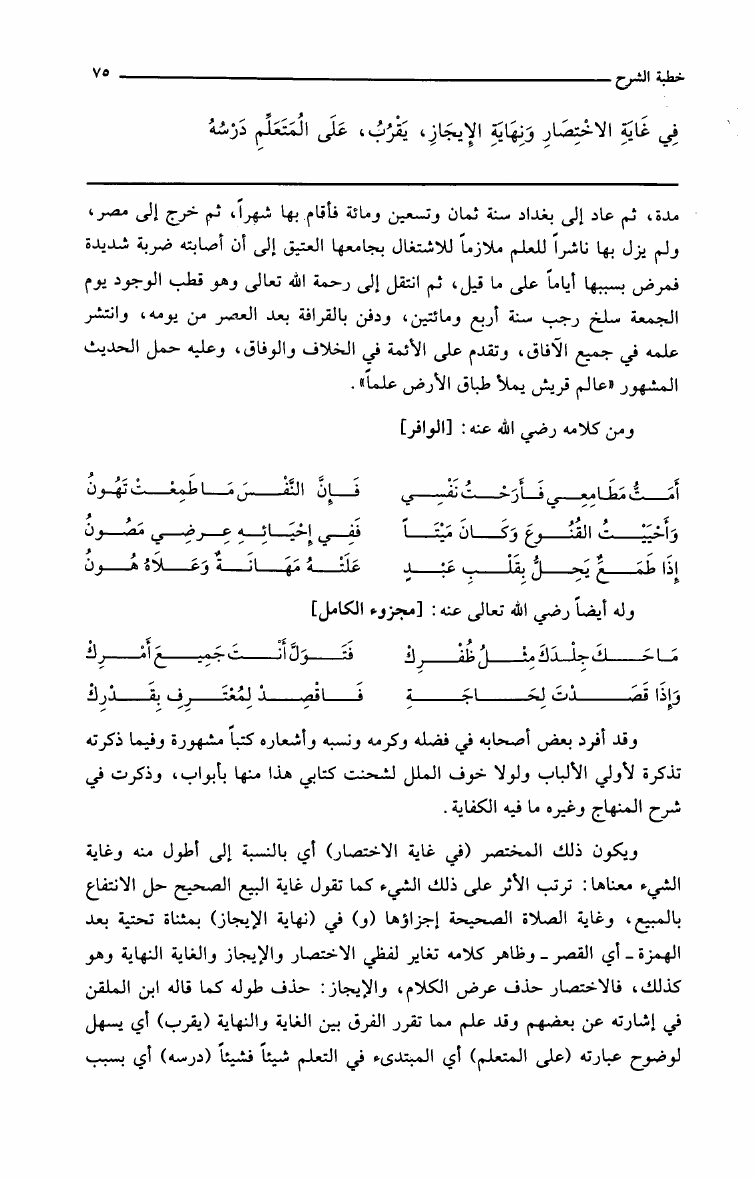 خطبة الشرح ٧٥
فِي غَايَةِ الاخْتِصَارِ وَنِهَايَةِ الإِيجَازِ، يَقْرُبُ، عَلَى الْمُتَعَلِّمِ دَرْسُهُ
مدة، ثم عاد إلى بغداد سنة ثمان وتسعين ومائة فأقام بها شهراً، ثم خرج إلى مصر،
ولم يزل بها ناشراً للعلم ملازماً للاشتغال بجامعها العتيق إلى أن أصابته ضربة شديدة
فمرض بسببها أياماً على ما قيل، ثم انتقل إلى رحمة الله تعالى وهو قطب الوجود يوم
الجمعة سلخ رجب سنة أربع ومائتين، ودفن بالقرافة بعد العصر من يومه، وانتشر
علمه في جميع الآفاق، وتقدم على الأئمة في الخلاف والوفاق، وعليه حمل الحديث
المشهور «عالم قريش يملأ طباق الأرض علماً».
ومن كلامه رضي الله عنه: [الوافر]
أَمَتُّ مَطَامِعِي فَأَرَحْتُ نَفْسِي فَإِنَّ النَّفْسَ مَا طَمِعَتْ تَهُونُ
وَأَحْيَيْتُ القُنُوعَ وَكَانَ مَيْتاً فَفِي إِحْيَائِهِ عِرضِي مَصُونُ
إِذَا طَمَعٌ يَحِلُّ بِقَلْبِ عَبْدٍ عَلَتْهُ مَهَانَةٌ وَعَلَاهُ هُونُ
وله أيضاً رضي الله تعالى عنه: [مجزوء الكامل]
مَا حَكَ جِلْدَكَ مِثْلُ ظُفْرِكْ فَتَوَلَّ أَنْتَ جَمِيعَ أَمْرِكْ
وَإِذَا قَصَدْتَ لِحَاجَةٍ فَاقْصِدْ لِمُعْتَرِفٍ بِقَدْرِكْ
وقد أفرد بعض أصحابه في فضله وكرمه ونسبه وأشعاره كتباً مشهورة وفيما ذكرته
تذكرة لأولي الألباب ولولا خوف الملل لشحنت كتابي هذا منها بأبواب، وذكرت في
شرح المنهاج وغيره ما فيه الكفاية.
ويكون ذلك المختصر (في غاية الاختصار) أي بالنسبة إلى أطول منه وغاية
الشيء معناها: ترتب الأثر على ذلك الشيء كما تقول غاية البيع الصحيح حل الانتفاع
بالمبيع، وغاية الصلاة الصحيحة إجزاؤها (و) في (نهاية الإيجاز) بمثناة تحتية بعد
الهمزة ـ أي القصر ـ وظاهر كلامه تغاير لفظي الاختصار والإيجاز والغاية النهاية وهو
كذلك، فالاختصار حذف عرض الكلام، والإيجاز: حذف طوله كما قاله ابن الملقن
في إشارته عن بعضهم وقد علم مما تقرر الفرق بين الغاية والنهاية (يقرب) أي يسهل
لوضوح عبارته (على المتعلم) أي المبتدىء في التعلم شيئاً فشيئاً (درسه) أي بسبب